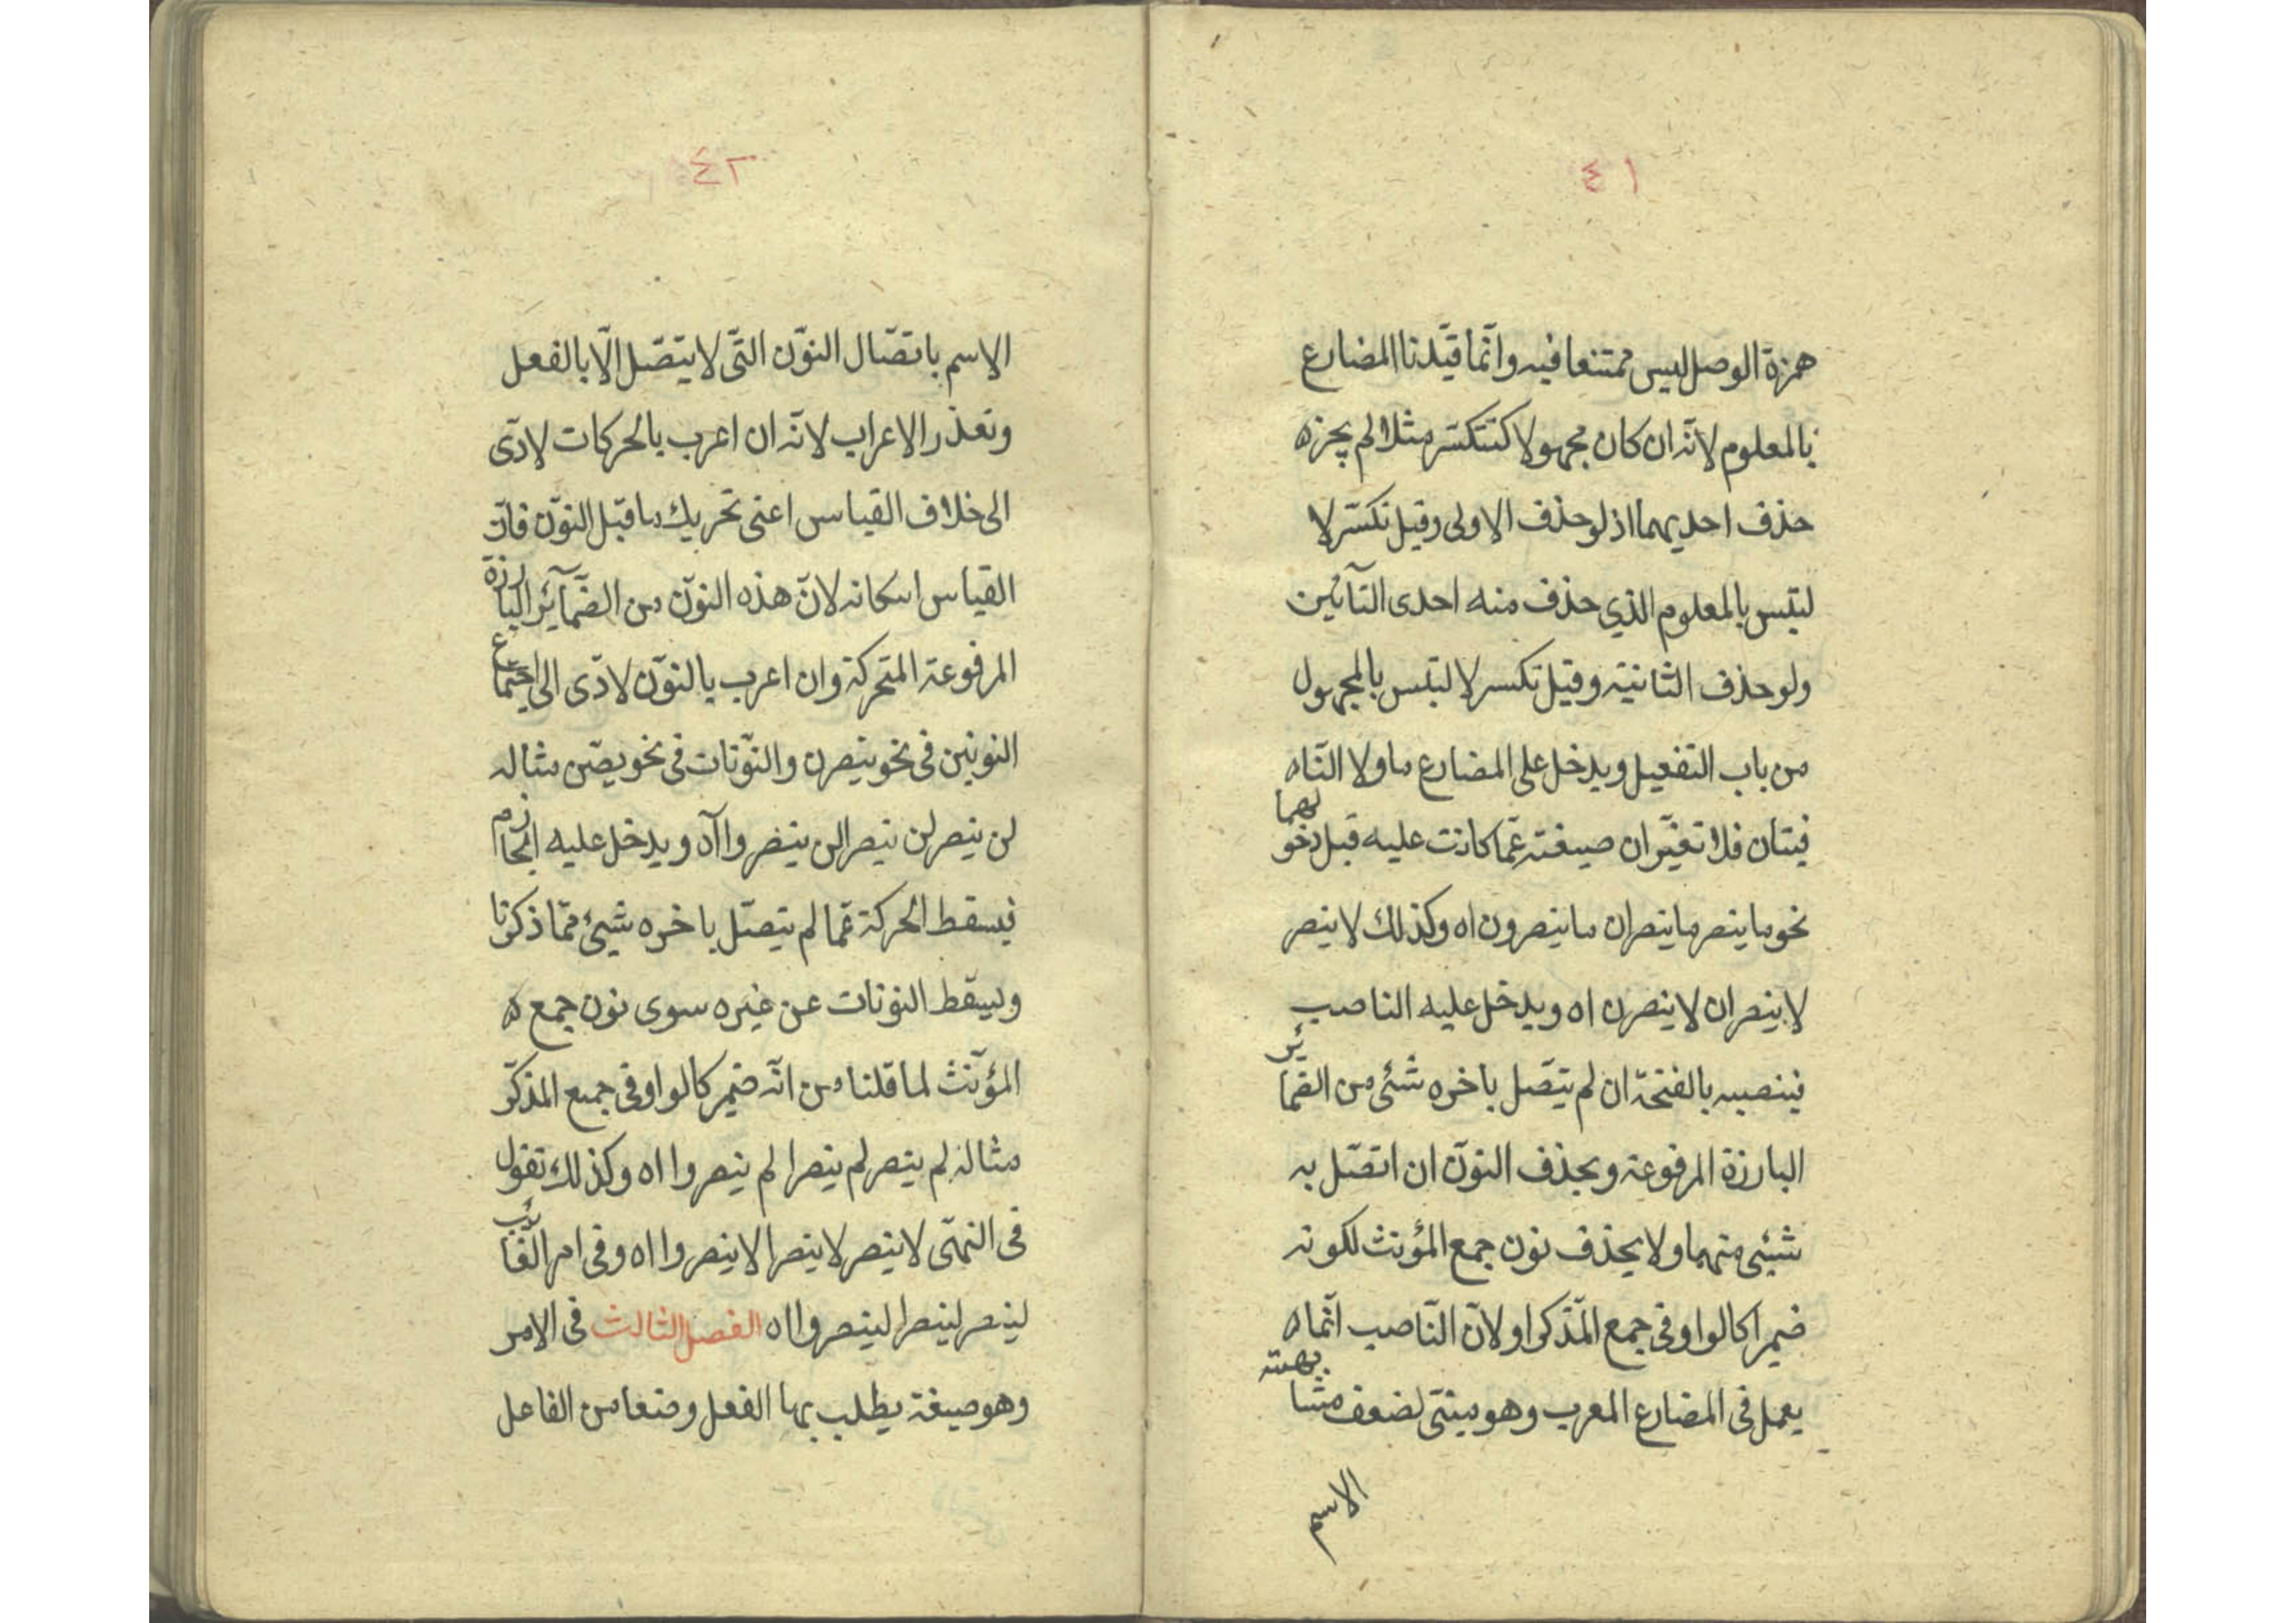 ٤١
همزة الوصل ليس ممتنعا فيه وانّما قيّدنا المضارع
بالمعلوم لانّه ان كان مجهولا كتتكسّر مثلا لم يجزه
حذف احديهما اذ لو حذف الاولى وقيل تكسّر لا
لتبس بالمعلوم الذي حذف منه احدى التآئين
ولو حذف الثانية وقيل تكسر لا لتبس بالمجهول
من باب التفعيل ويدخل على المضارع ما ولا النّاه
فيتان فلا تغيّران صيغته عمّا كانت عليه قبل دخولهما
نحو ما ينصر ما ينصران ما ينصرون اه وكذلك لا ينصر
لا ينصران لا ينصرن اه ويدخل عليه الناصب
فينصبه بالفتحة ان لم يتصّل باخره شئى من الضمائر
البارزة المرفوعة ويحذف النوّن ان اتصّل به
شيئى منهما ولا يحذف نون جمع المؤنث لكونه
ضميرا كالواو فى جمع المذّكر او لانّ النّاصب انّماه
يعمل فى المضارع المعرب وهو مبنىّ لضعف مشابهته
الاسم
٤٢
الاسم باتصّال النوّن التّى لا يتصّل الّا بالفعل
وتعذر الاعراب لانّه ان اعرب بالحركات لادّى
الى خلاف القياس اعنى تحريك ما قبل النوّن فانّ
القياس اسكانه لانّ هذه النوّن من الضّمآئر البارزة
المرفوعة المتحركة وان اعرب بالنوّن لادّى الى اجتماع
النونين فى نحو ينصرن والنوّنات فى نحو يصّن مثاله
لن ينصر لن ينصرا لن ينصروا آه ويدخل عليه الجازم
فيسقط الحركة عمّا لم يتصّل باخره شيئ ممّا ذكرنا
وليسقط النونات عن غيره سوى نون جمع ه
المؤنّث لما قلنا من انّه ضمير كالواو فى جمع المذكّر
مثاله لم ينصر لم ينصرا لم ينصروا اه وكذلك تقول
فى النهّى لا ينصر لا ينصرا لا ينصروا اه وفى امر الغائب
لينصر لينصرا لينصروا اه الفصل الثالث فى الامر
وهو صيغة يطلب بها الفعل وضعا من الفاعل